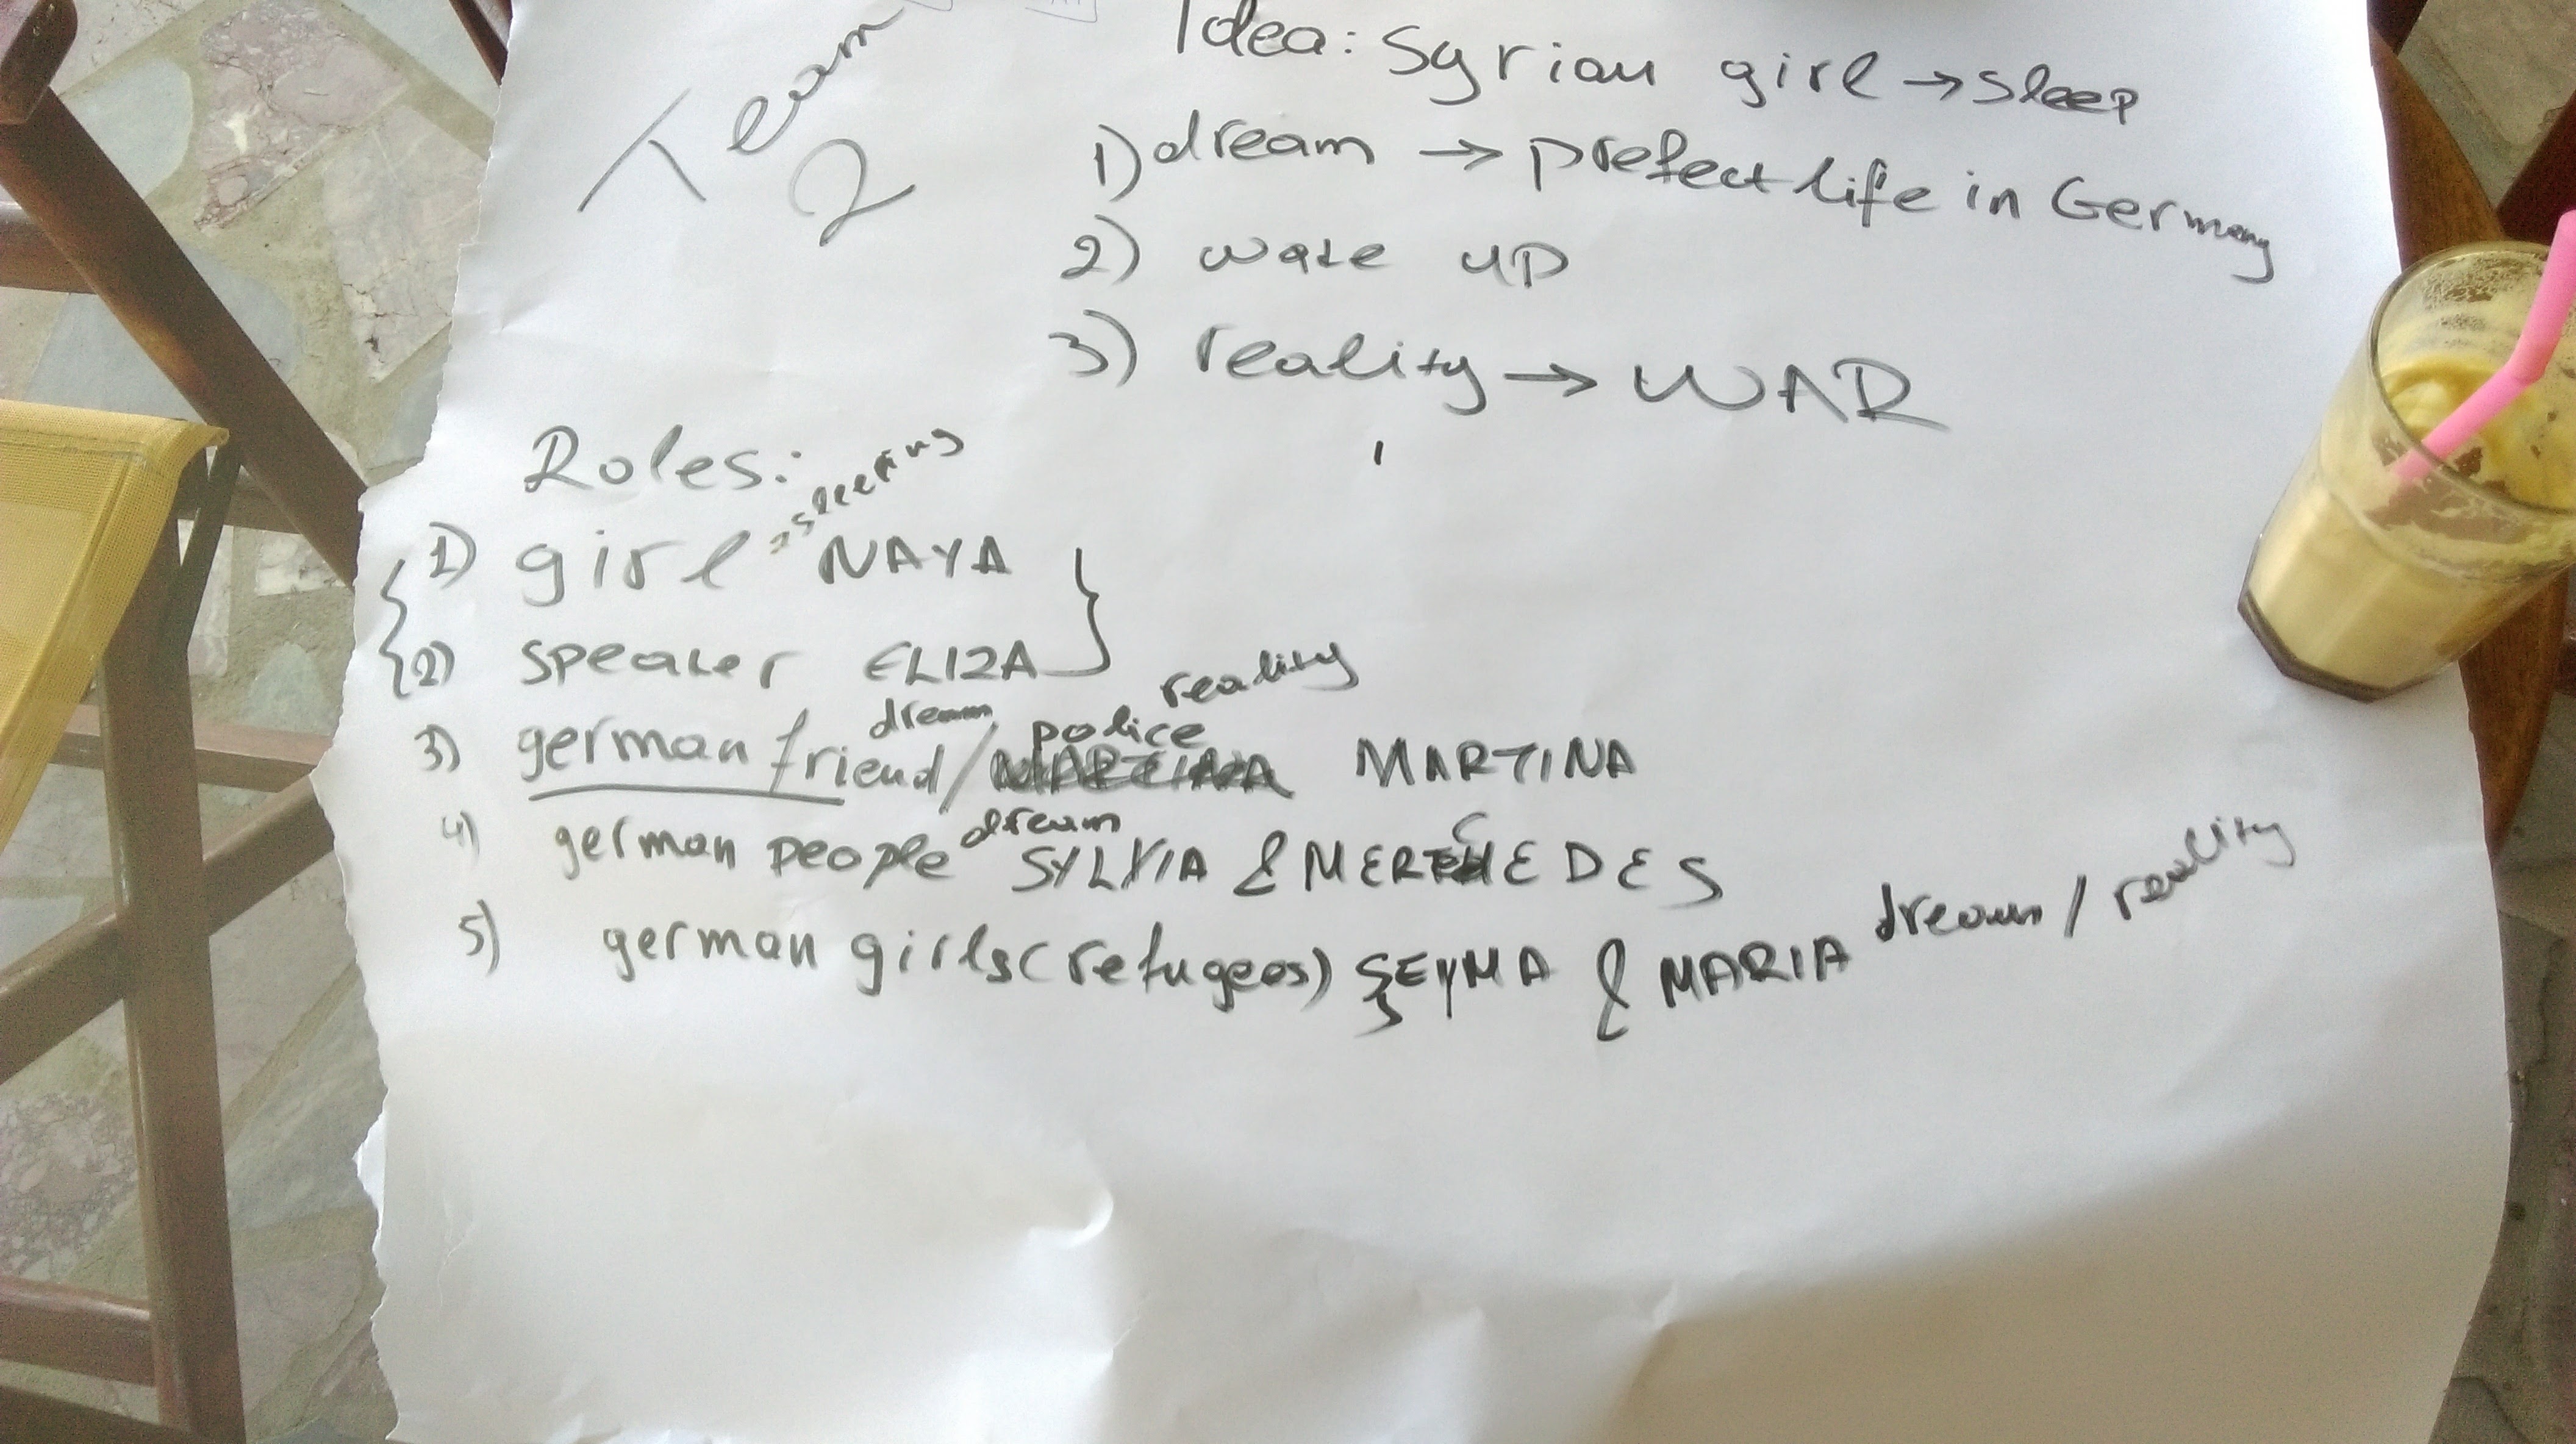 Team
2
Idea: Syrian girl → sleep
1) dream → prefect life in Germany
2) wake up
3) reality → WAR
Roles:
1) girl → sleeping NAYA
2) speaker ELIZA
3) german friend dream / police reality MARTINA
4) german people dream SYLVIA & MERCEDES
5) german girls (refugees) ŞEYMA & MARIA dream / reality